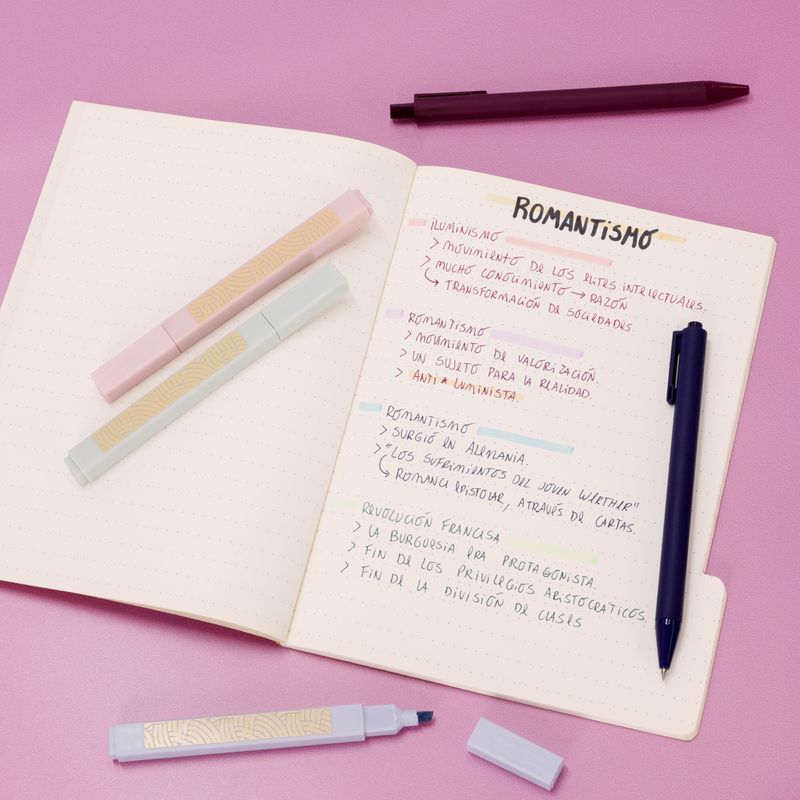 ROMANTISMO
ILUMINISMO
> MOVIMIENTO DE LOS ELITES INTELECTUALES.
> MUCHO CONOCIMIENTO → RAZÓN
↳ TRANSFORMACIÓN DE SOCIEDADES.
ROMANTISMO
> MOVIMIENTO DE VALORIZACIÓN.
> UN SUJETO PARA LA REALIDAD.
> ANTI * LUMINISTA.
ROMANTISMO
> SURGIÓ EN ALEMANIA.
> "LOS SUFRIMIENTOS DEL JOVEN WERTHER"
↳ ROMANCE EPISTOLAR, ATRAVÉS DE CARTAS.
REVOLUCIÓN FRANCESA
> LA BURGUESIA ERA PROTAGONISTA.
> FIN DE LOS PRIVILEGIOS ARISTOCRATICOS.
> FIN DE LA DIVISIÓN DE CLASES